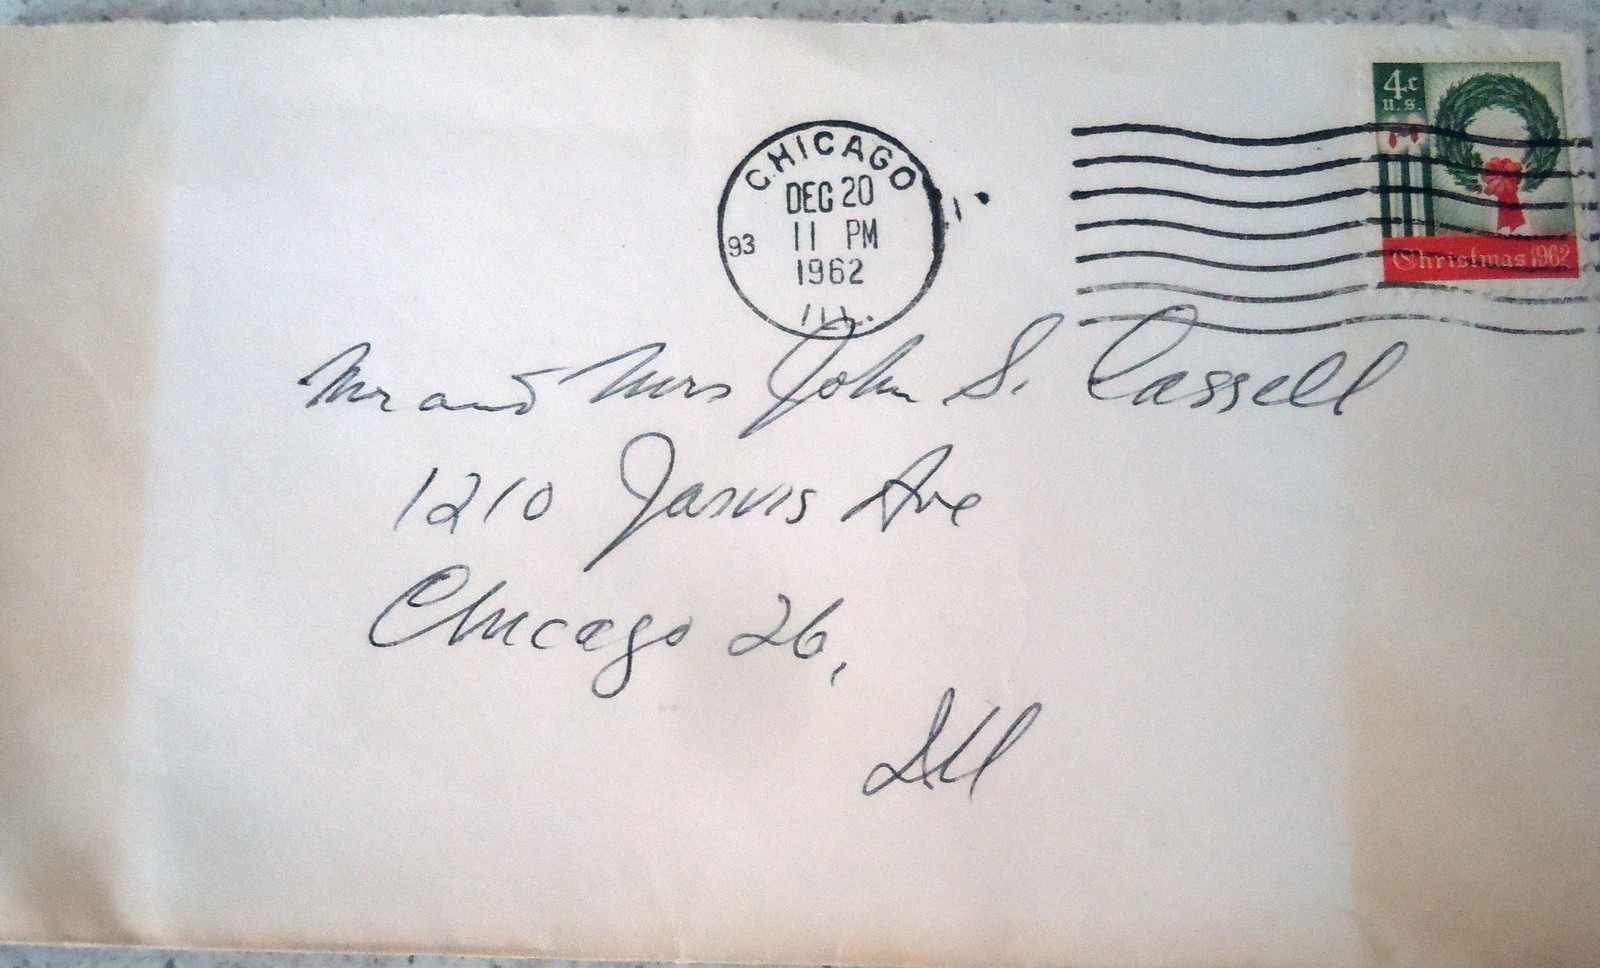 4c
U.S.
Christmas 1962
CHICAGO
DEC 20
93 11 PM
1962
ILL.
Mr and Mrs John S. Cassell
1210 Jarvis Ave
Chicago 26,
Ill